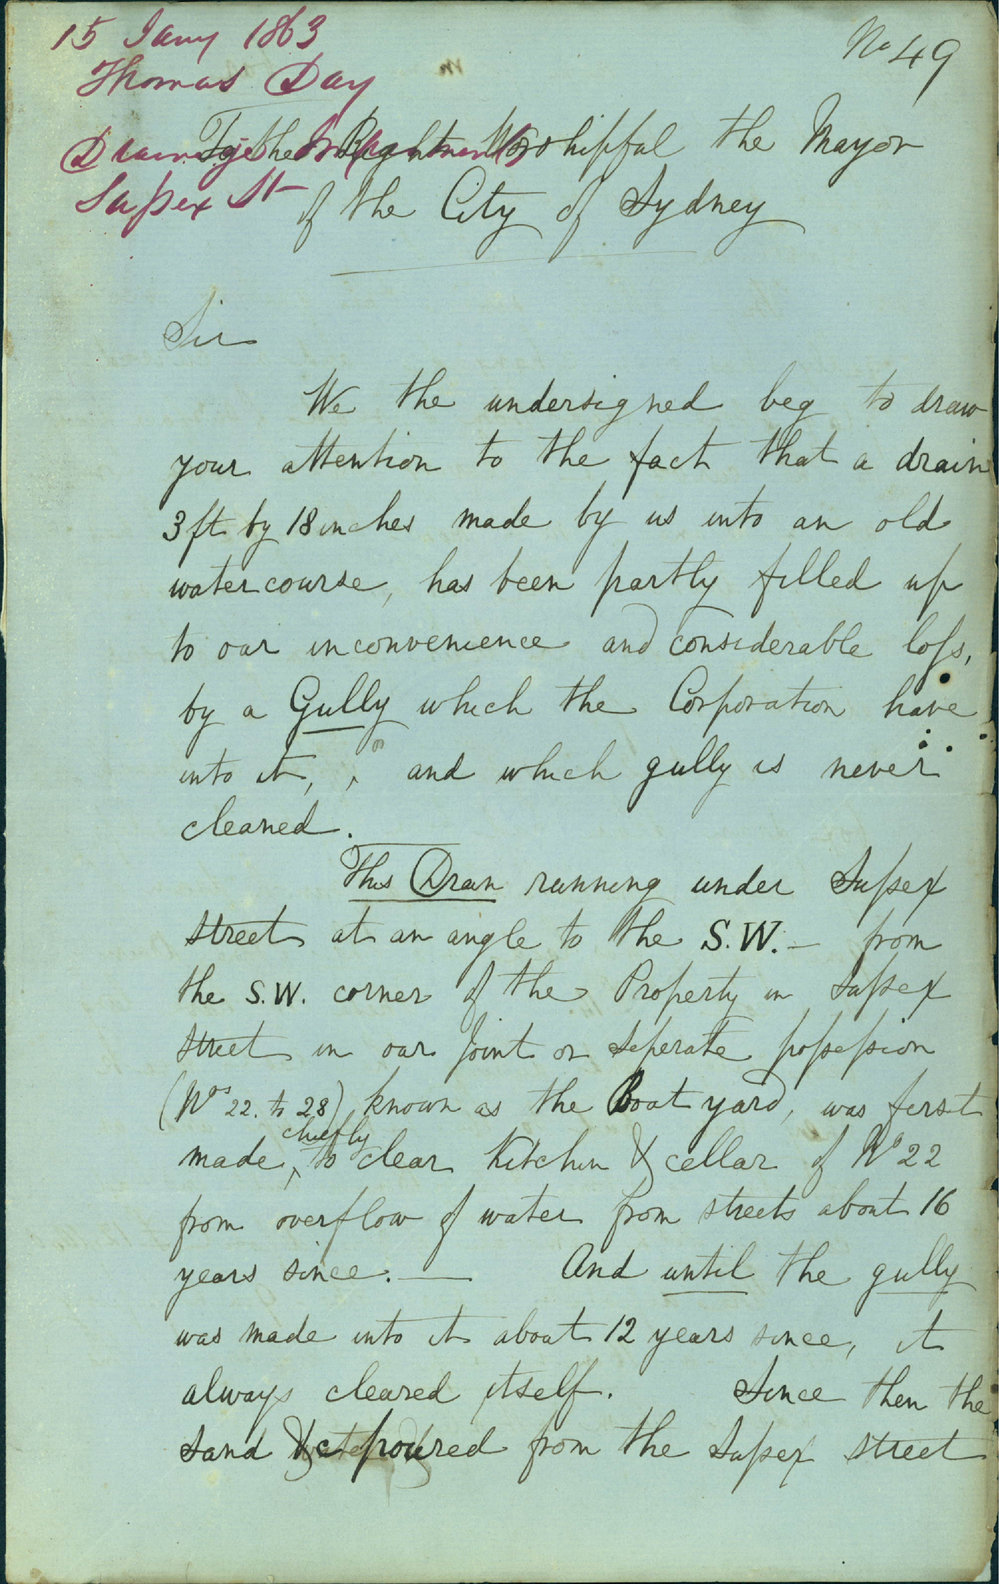 15 Jany 1863
Thomas Day
Drainage Improvements
Sussex St
No 49
To the Right Worshipful the Mayor
of the City of Sydney
Sir
We the undersigned beg to draw
your attention to the fact that a drain
3ft by 18 inches made by us into an old
watercourse, has been partly filled up
to our inconvenience and considerable loss,
by a Gully which the Corporation have
into it, and which gully is never
cleaned.
This Drain running under Sussex
street at an angle to the S.W. — from
the S.W. corner of the Property in Sussex
street in our joint or seperate possession
(Nos 22. to 28) known as the Boat yard, was first
made, chiefly to clear Kitchen & cellar of No 22
from overflow of water from streets about 16
years since. — And until the gully
was made into it about 12 years since, it
always cleared itself. Since then the
sand &c poured from the Sussex street